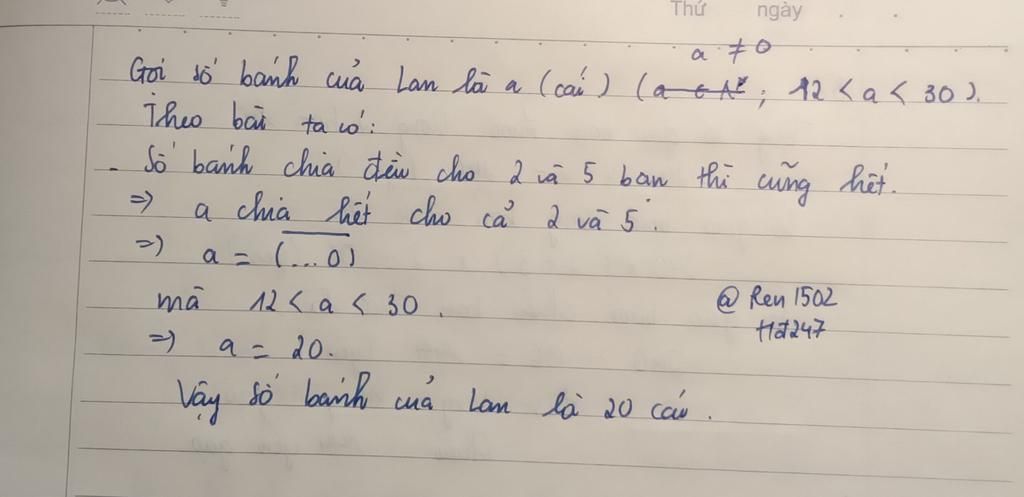 Thứ ngày . .
a ≠ 0
Gọi số bánh của Lan là a (cái) (a ∈ N*; 12 < a < 30).
Theo bài ta có:
- Số bánh chia đều cho 2 và 5 bạn thì cũng hết.
=> a chia hết cho cả 2 và 5.
=> a = (...0)
mà 12 < a < 30.
=> a = 20.
Vậy số bánh của Lan là 20 cái.
@ Ren 1502
Hđ247